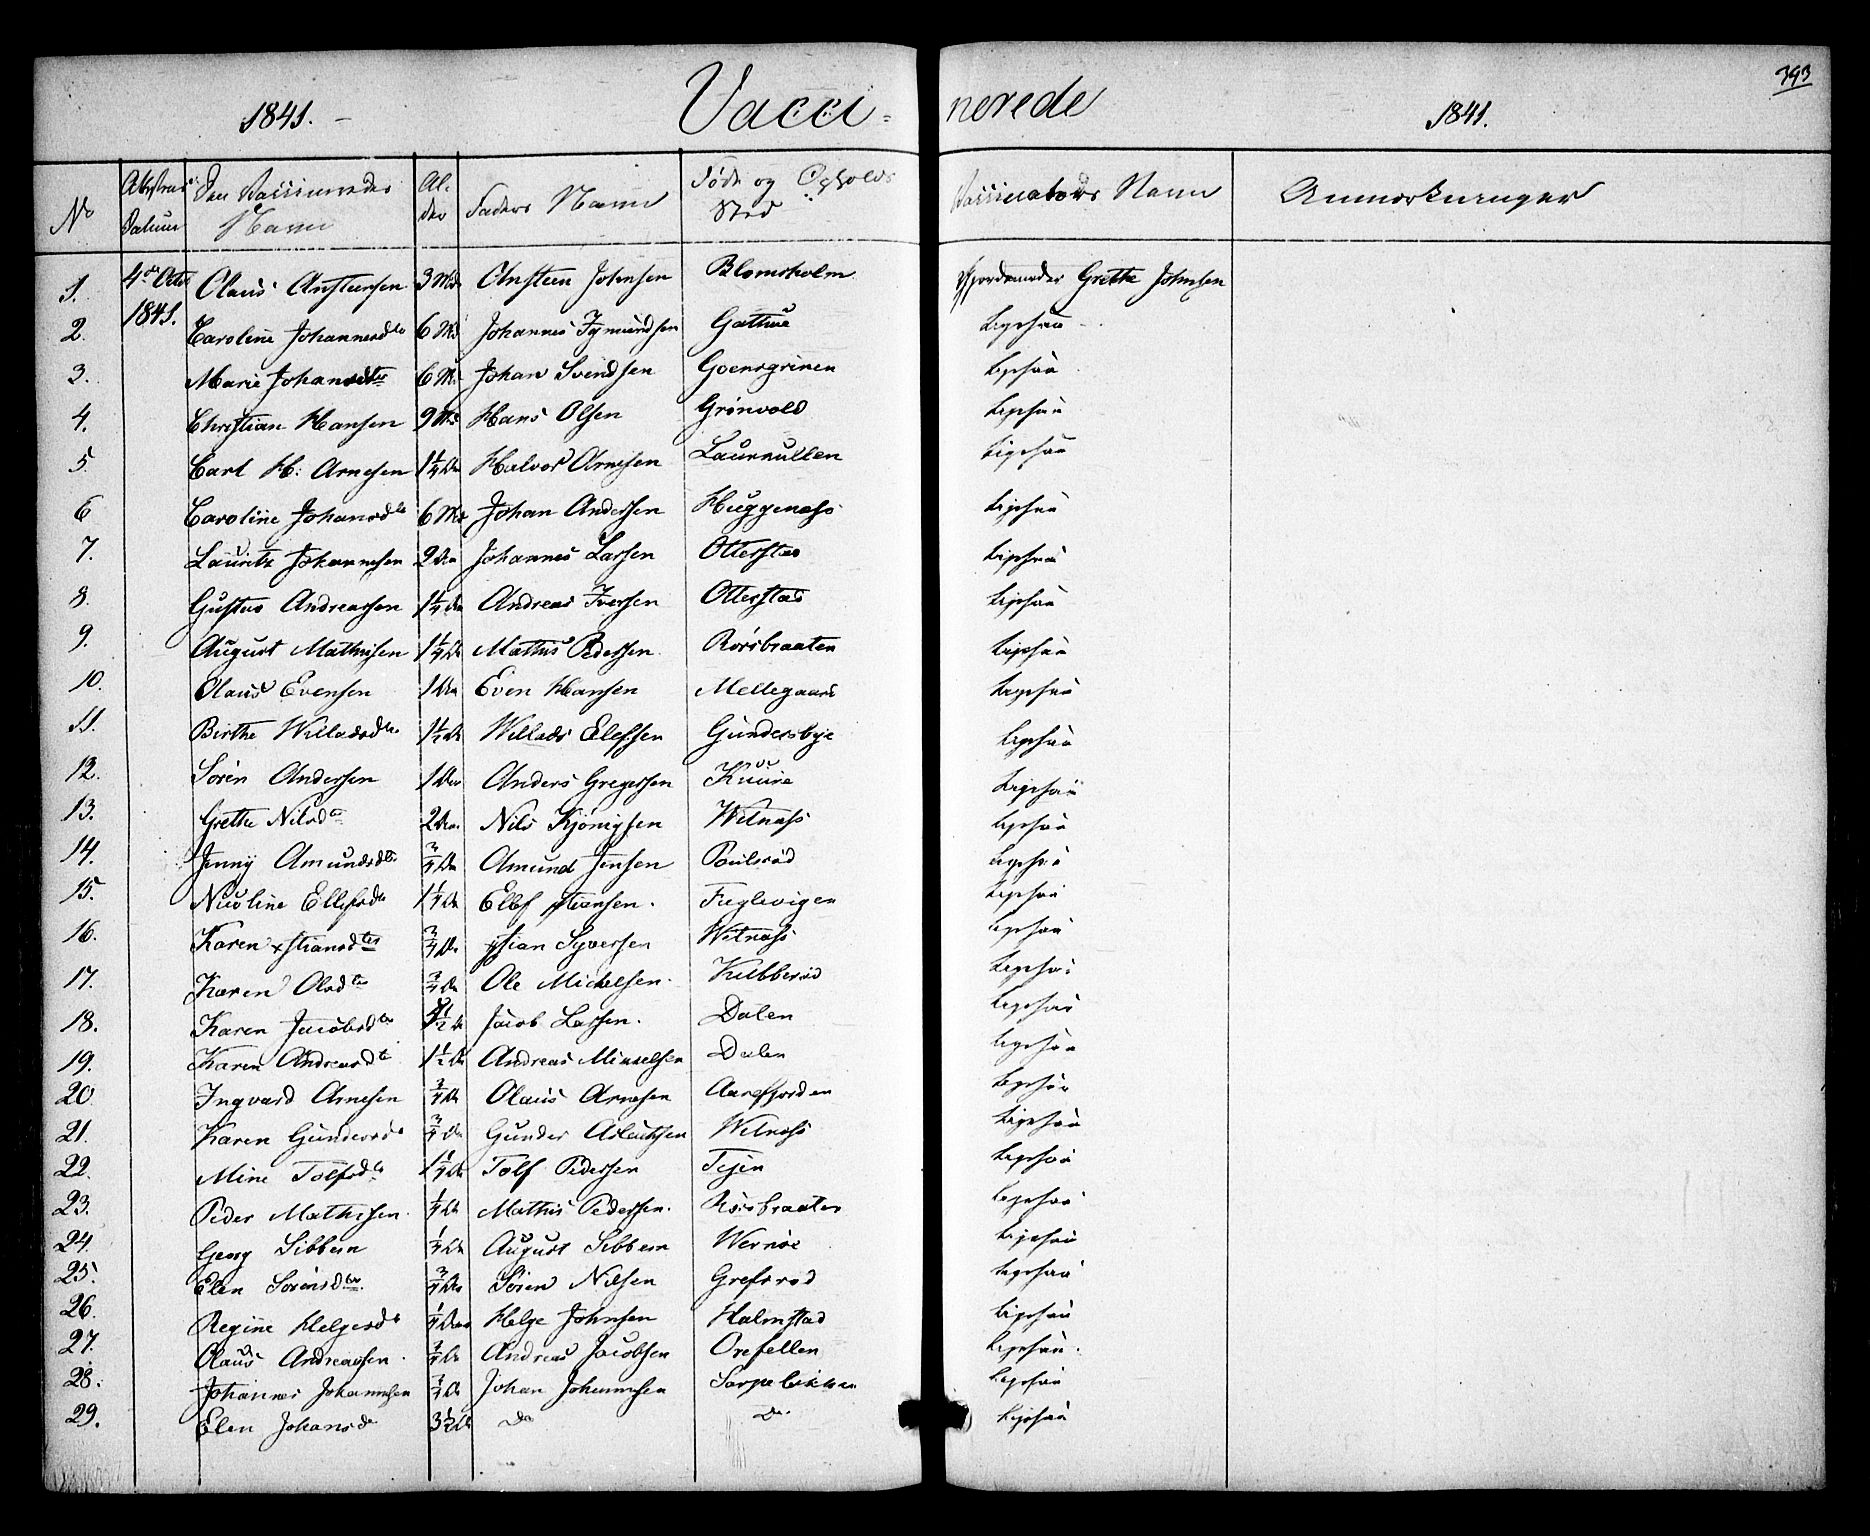 393
1841. Vacci- nerede 1841.
No Attestens Datum Den Vaccineredes Navn Alder Faders Navn Føde og Opholds Sted Vaccinatørs Navn Anmærkninger
1. 4de Octr 1841. Olaus Anstensen 3 Md Ansteen Johnsen Blomsholm Gjordemoder Grethe Johnsen
2. Caroline Johannesdtr 6 Md Johannes Ingmundsen Gathue Ligesaa
3. Marie Johansdtr 6 Md Johan Svendsen Goensgrinen Ligesaa
4. Christian Hansen 9 Md Hans Olsen Grönvold Ligesaa
5. Carl H: Arnesen 1¼ Halvor Arnesen Laurkullen Ligesaa
6 Caroline Johansdtr 6 Md Johan Andersen Huggenæs Ligesaa
7. Lauritz Johannesen 2 Johannes Larsen Otterstad Ligesaa
8. Gustav Andreassen 1¼ Andreas Iversen Otterstad Ligesaa
9. August Mathisen 1¼ Mathis Pedersen Rörsbraaten Ligesaa
10. Olaus Evensen 1 Even Hansen Mellegaard Ligesaa
11. Birthe Willadsdtr 1½ Willads Elefsen Gundersbye Ligesaa
12. Sören Andersen 1 Anders Gregersen Kuure Ligesaa
13. Grethe Nilsdtr 2 Nils Kjönigsen Witnæs Ligesaa
14. Jenny Amundsdtr ¾ Amund Jensen Poulsröd Ligesaa
15. Nicoline Ellefsdtr 1¼ Ellef Xstiansen. Fuglevigen Ligesaa
16. Karen Xstiansdtr ¾ Xstian Syversen Witnæs Ligesaa
17. Karen Olsdtr ¾ Ole Mickelsen. Kilbberöd Ligesaa
18. Karen Jacobsdtr ½ Jacob Larsen. Dalen Ligesaa
19. Karen Andreasdtr 1½ Andreas Mickelsen Dalen Ligesaa
20 Ingvard Arnesen ¾ Olaus Arnesen Aarefjorden Ligesaa
21. Karen Gundersdtr ¾ Gunder Aslacksen Witnæs Ligesaa
22. Mine Tolfsdtr 1¼ Tolf Pedersen Tejen Ligesaa
23. Peder Mathisen. ¼ Mathis Pedersen. Rörsbraaten Ligesaa
24. Georg Sibbern ¼ August Sibbern Wernöe Ligesaa
25. Elen Sörensdtr ¾ Sören Nilsen Grefsröd Ligesaa
26. Regine Helgesdtr ¼ Helge Johnsen Halmstad Ligesaa
27. Olaus Andreassen. ¾ Andreas Jacobsen Orefellen Ligesaa.
28. Johannes Johannesen ¾ Johan Johannesen Sarpebakken Ligesaa
29. Elen Johansdr 3½ Do Do. Ligesaa